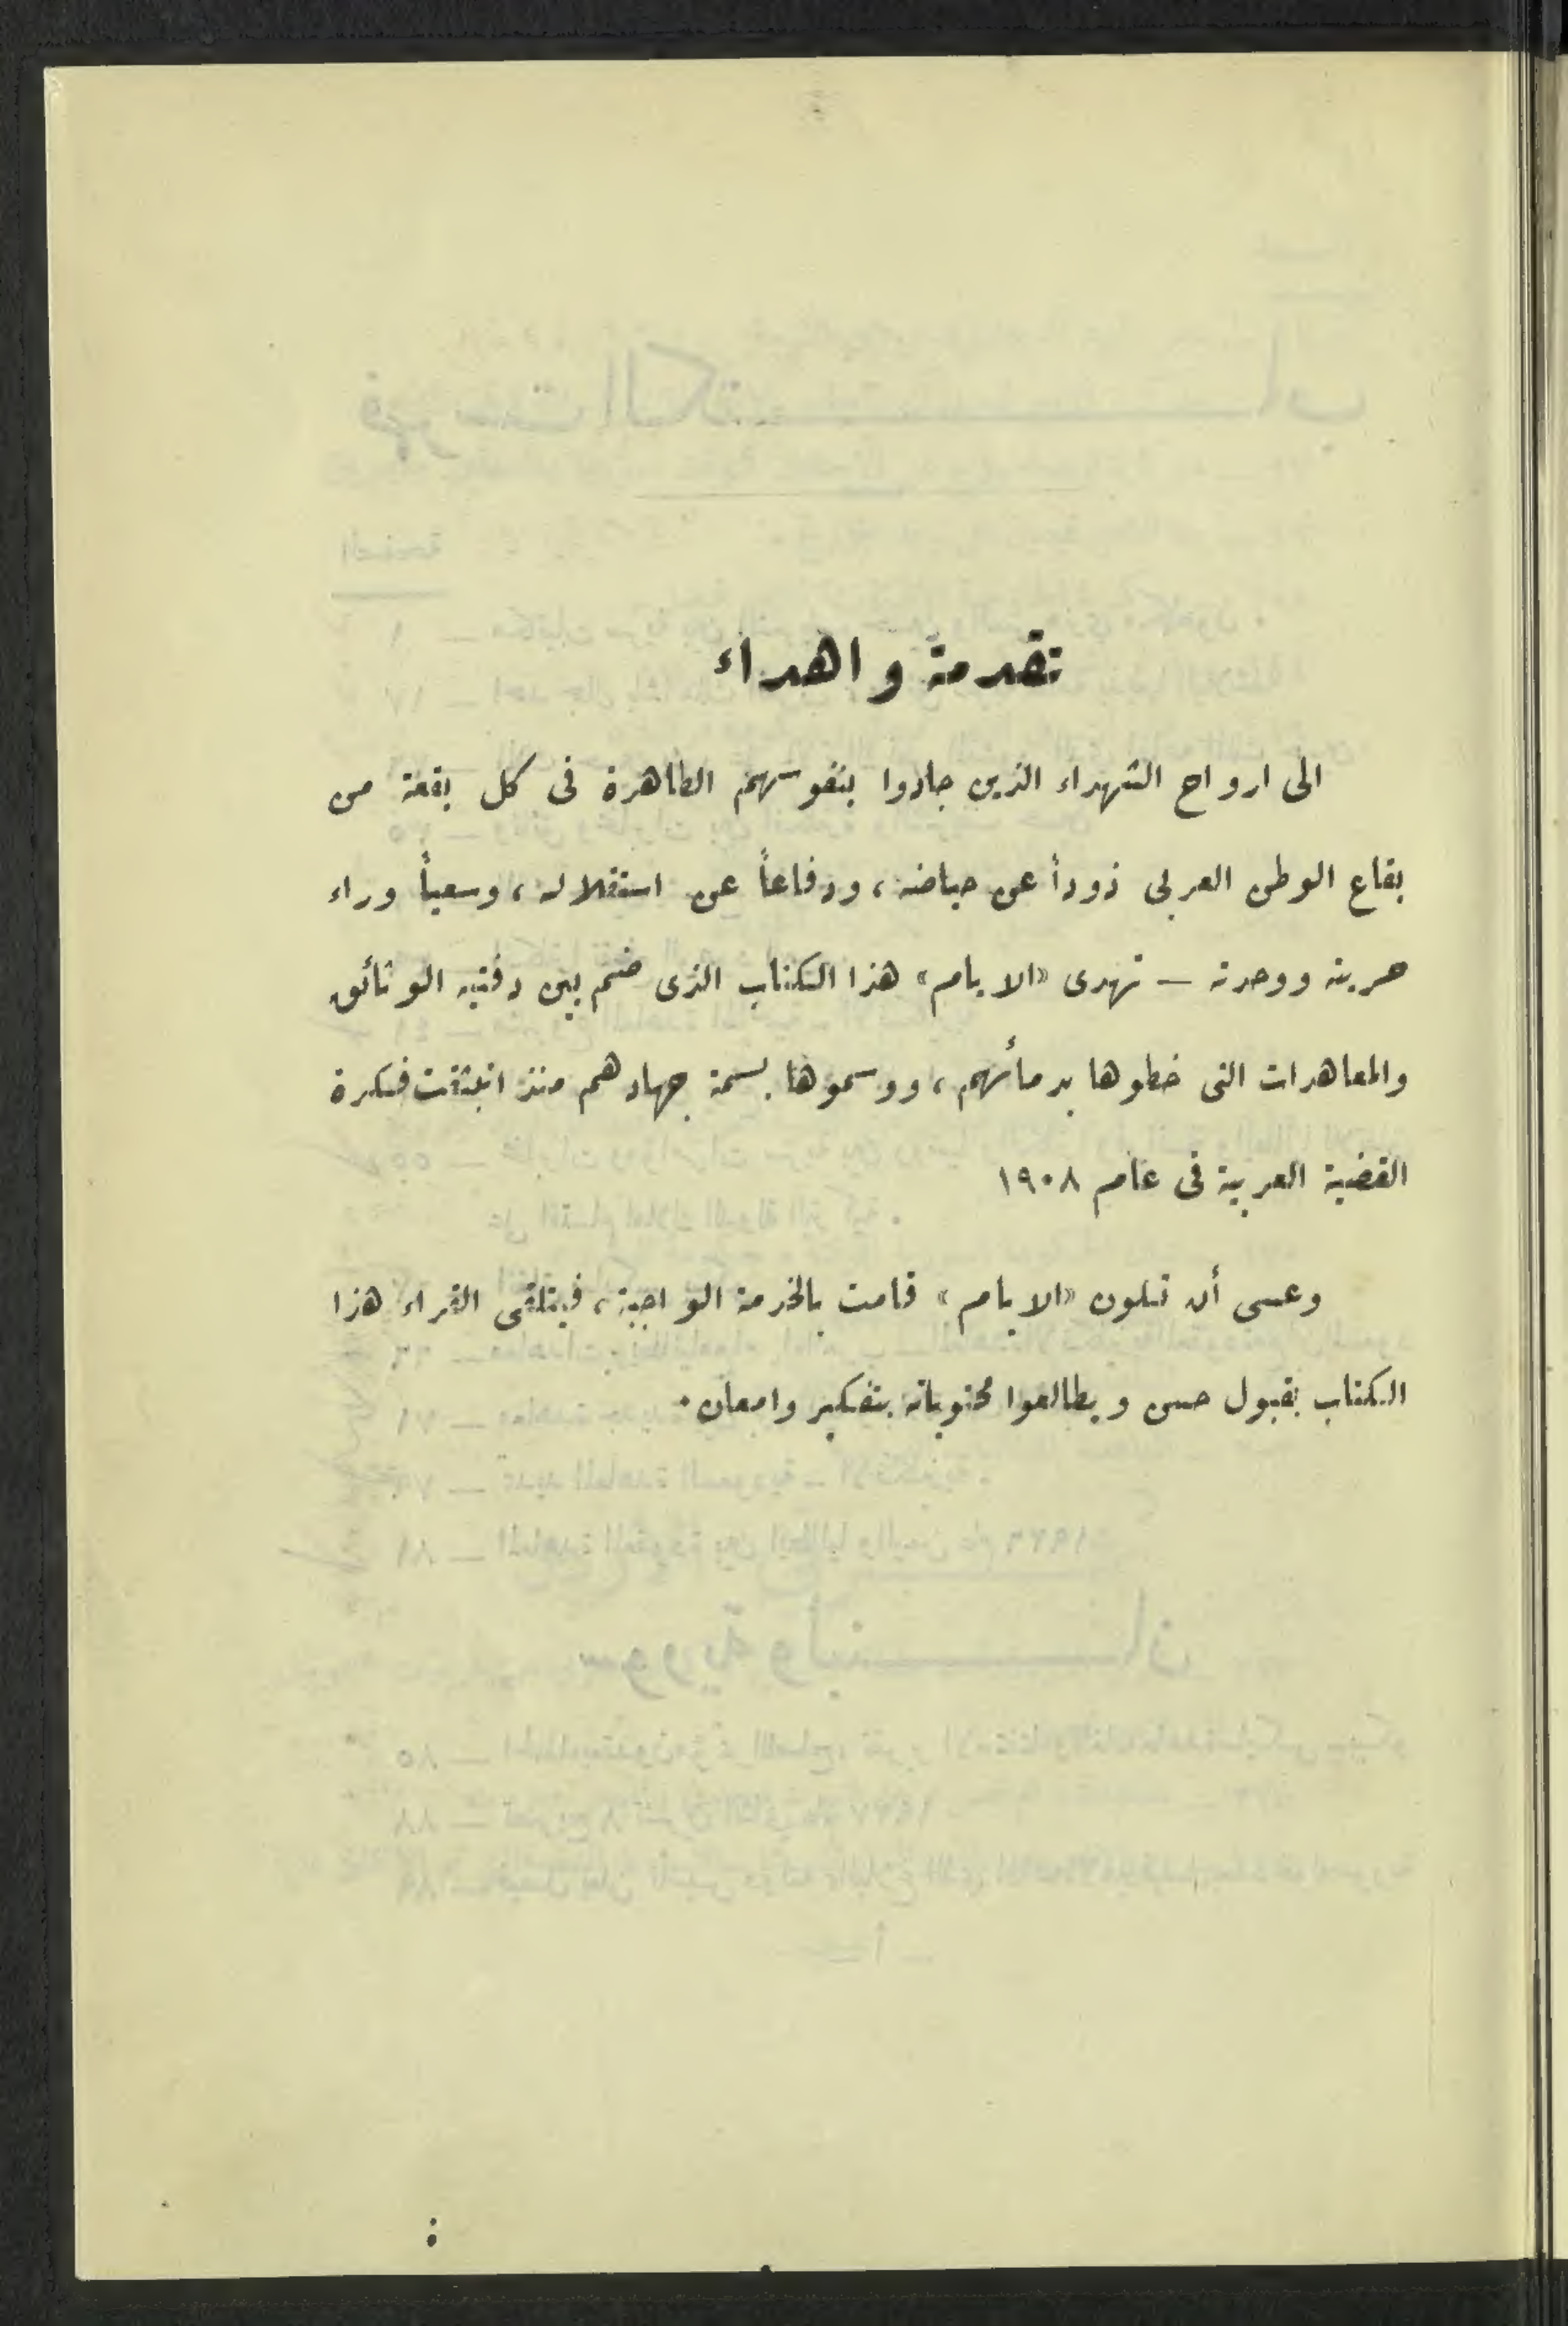 تقدمة واهداء
الى ارواح الشهداء الذين جادوا بنفوسهم الطاهرة فى كل بقعة من
بقاع الوطن العربى ذوداً عن حياضه، ودفاعاً عن استقلاله، وسعياً وراء
حريته ووحدته — تهدى «الايام» هذا الكتاب الذى ضم بين دفتيه الوثائق
والمعاهدات التى خطوها بدمائهم، ووسموها بسمة جهادهم منذ انبثقت فكرة
القضية العربية فى عام ١٩٠٨
وعسى أن تكون «الايام» قامت بالخدمة الواجبة، فيتلقى القراء هذا
الكتاب بقبول حسن ويطالعوا محتوياته بتفكير وامعان.